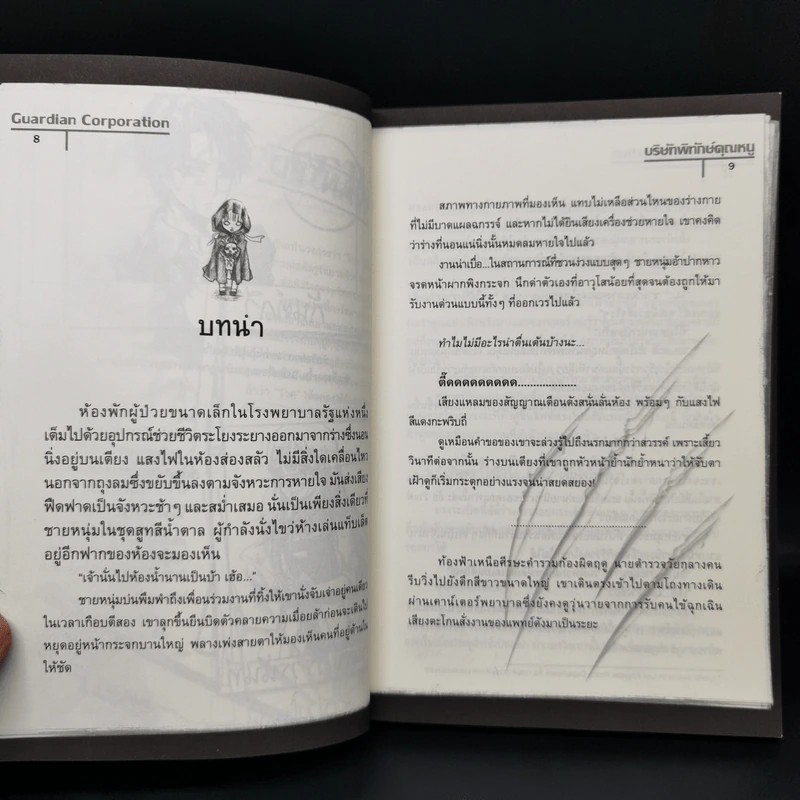 Guardian Corporation
8
บทนำ
ห้องพักผู้ป่วยขนาดเล็กในโรงพยาบาลรัฐแห่งหนึ่ง
เต็มไปด้วยอุปกรณ์ช่วยชีวิตระโยงระยางออกมาจากร่างซึ่งนอน
นิ่งอยู่บนเตียง แสงไฟในห้องส่องสลัว ไม่มีสิ่งใดเคลื่อนไหว
นอกจากถุงลมซึ่งขยับขึ้นลงตามจังหวะการหายใจ มันส่งเสียง
ฟืดฟาดเป็นจังหวะช้าๆ และสม่ำเสมอ นั่นเป็นเพียงสิ่งเดียวที่
ชายหนุ่มในชุดสูทสีน้ำตาล ผู้กำลังนั่งไขว่ห้างเล่นแท็บเล็ต
อยู่อีกฟากของห้องจะมองเห็น
“เจ้านั่นไปห้องน้ำนานเป็นบ้า เฮ้อ...”
ชายหนุ่มบ่นพึมพำถึงเพื่อนร่วมงานที่ทิ้งให้เขานั่งจับเจ่าอยู่คนเดียว
ในเวลาเกือบตีสอง เขาลุกขึ้นยืนบิดตัวคลายความเมื่อยล้าก่อนจะเดินไป
หยุดอยู่หน้ากระจกบานใหญ่ พลางเพ่งสายตาให้มองเห็นคนที่อยู่ด้านใน
ให้ชัด
บริษัทพิทักษ์คุณหนู
9
สภาพทางกายภาพที่มองเห็น แทบไม่เหลือส่วนไหนของร่างกาย
ที่ไม่มีบาดแผลฉกรรจ์ และหากไม่ได้ยินเสียงเครื่องช่วยหายใจ เขาคงคิด
ว่าร่างที่นอนแน่นิ่งนั้นหมดลมหายใจไปแล้ว
งานน่าเบื่อ...ในสถานการณ์ที่ชวนง่วงแบบสุดๆ ชายหนุ่มอ้าปากหาว
จรดหน้าผากพิงกระจก นึกด่าตัวเองที่อาวุโสน้อยที่สุดจนต้องถูกให้มา
รับงานด่วนแบบนี้ทั้งๆ ที่ออกเวรไปแล้ว
ทำไมไม่มีอะไรน่าตื่นเต้นบ้างนะ...
ตี๊ดดดดดดดดดด...................
เสียงแหลมของสัญญาณเตือนดังสนั่นลั่นห้อง พร้อมๆ กับแสงไฟ
สีแดงกะพริบถี่
ดูเหมือนคำขอของเขาจะล่วงรู้ไปถึงนรกมากกว่าสวรรค์ เพราะเสี้ยว
วินาทีต่อจากนั้น ร่างบนเตียงที่เขาถูกหัวหน้าย้ำนักย้ำหนาว่าให้จับตา
เฝ้าดูก็เริ่มกระตุกอย่างแรงจนน่าสยดสยอง!
..............................................
ท้องฟ้าเหนือศีรษะคำรามก้องผิดฤดู นายตำรวจวัยกลางคน
รีบวิ่งไปยังตึกสีขาวขนาดใหญ่ เขาเดินตรงเข้าไปตามโถงทางเดิน
ผ่านเคาน์เตอร์พยาบาลซึ่งยังคงดูวุ่นวายจากการรับคนไข้ฉุกเฉิน
เสียงตะโกนสั่งงานของแพทย์ดังมาเป็นระยะ